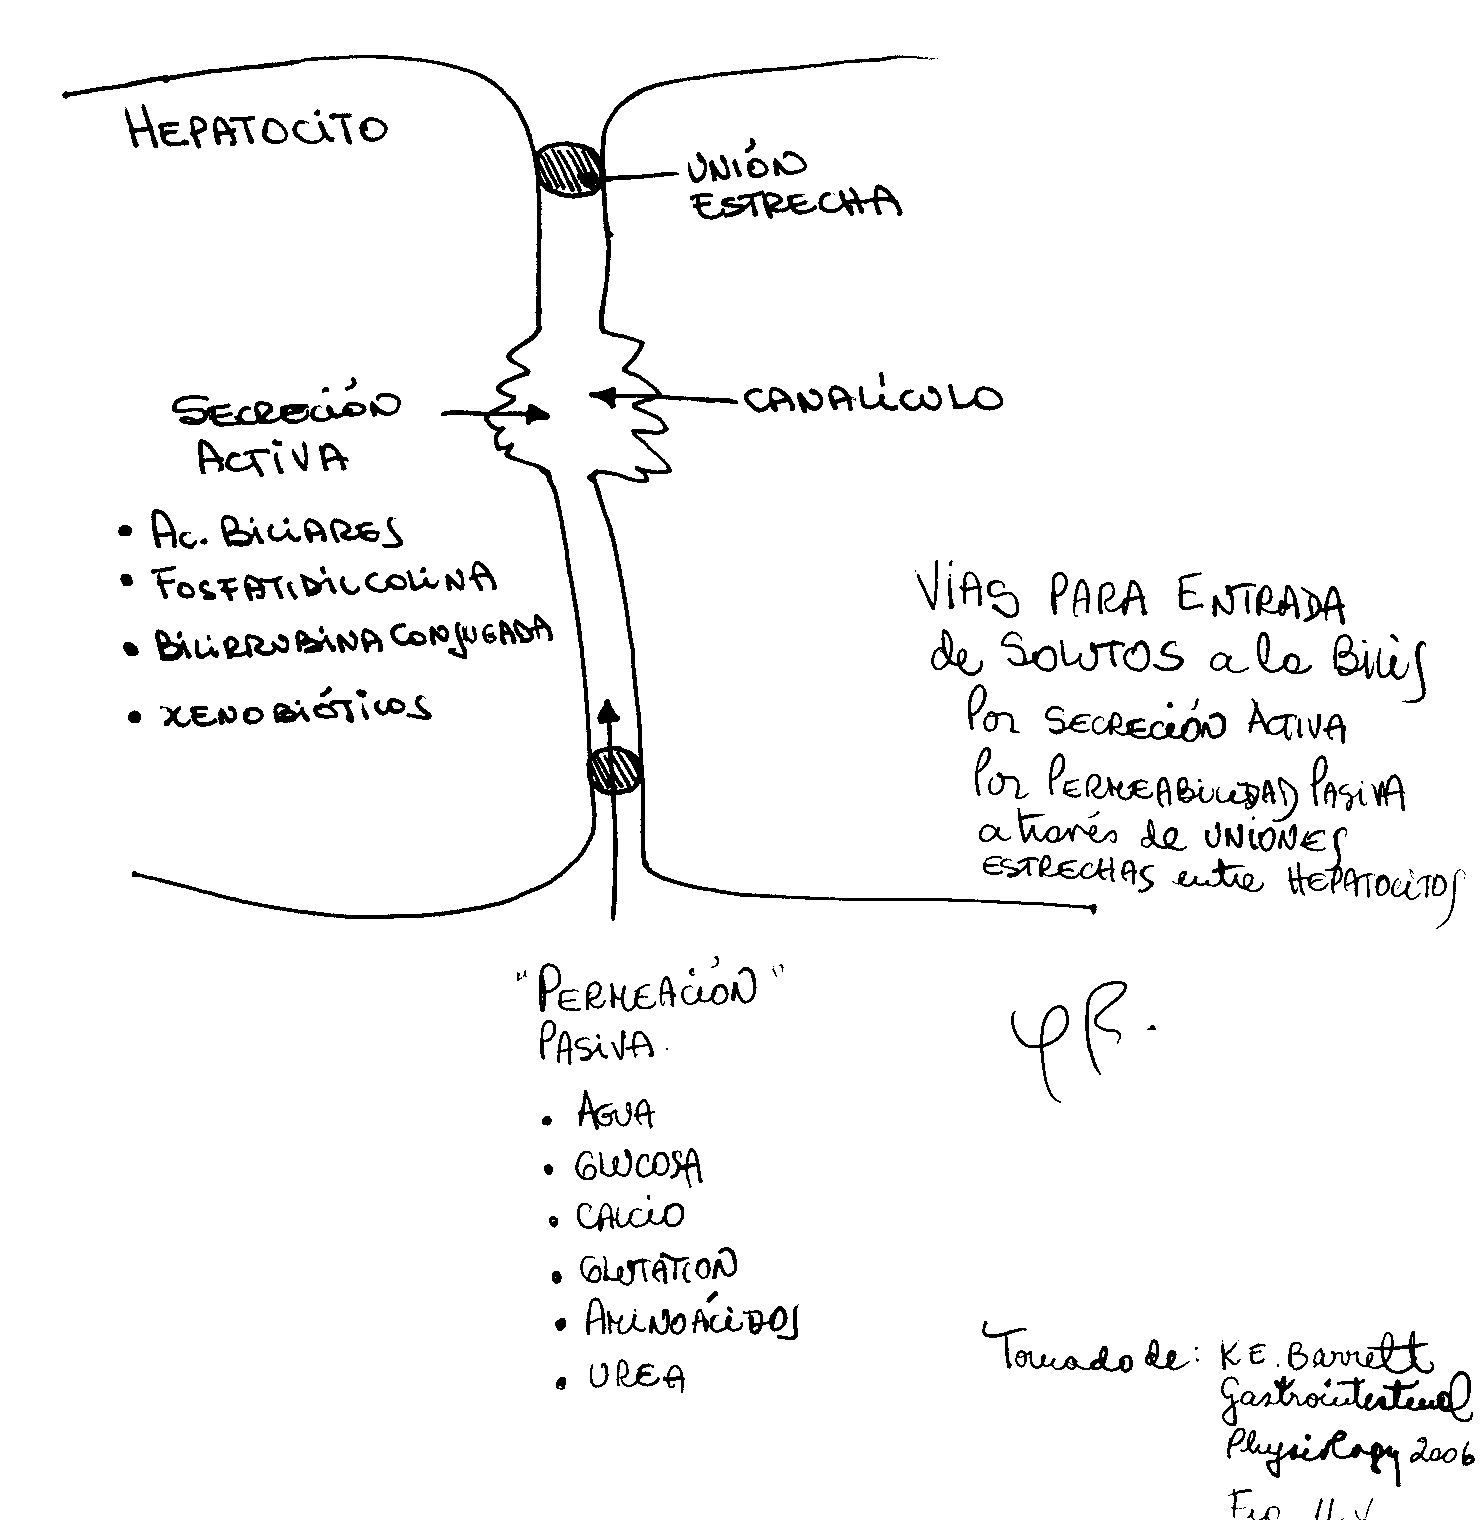 HEPATOCITO
UNIÓN
ESTRECHA
SECRECIÓN
ACTIVA
CANALÍCULO
• Ac. BILIARES
• FOSFATIDILCOLINA
• BILIRRUBINA CONJUGADA
• XENOBIÓTICOS
VÍAS PARA ENTRADA
de SOLUTOS a la Bilis
Por SECRECIÓN ACTIVA
Por PERMEABILIDAD PASIVA
a través de UNIONES
ESTRECHAS entre HEPATOCITOS
"PERMEACIÓN"
PASIVA.
• AGUA
• GLUCOSA
• CALCIO
• GLUTATION
• AMINOÁCIDOS
• UREA
Tomado de: K E. Barrett
Gastrointestinal
Physiology 2006